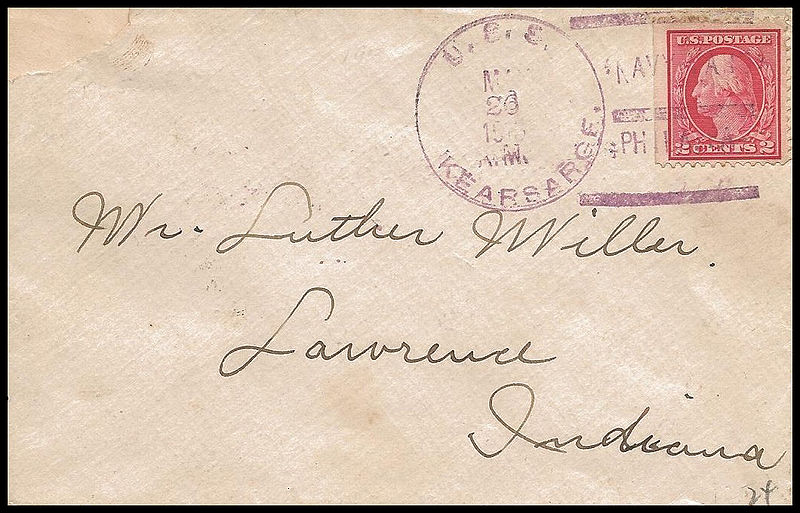 U.S.S.
26
A.M.
KEARSARGE.
NAVY
U.S. POSTAGE
2 CENTS 2
Mr. Luther Miller.
Lawrence
Indiana
24